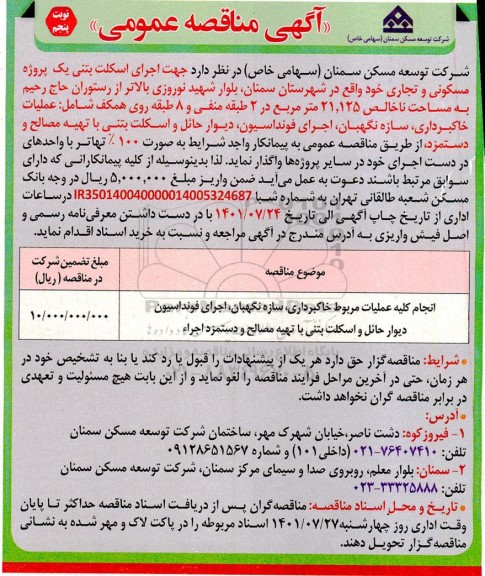 شرکت توسعه مسکن سمنان (سهامی خاص)
«آگهی مناقصه عمومی»
نوبت پنجم
شرکت توسعه مسکن سمنان (سهامی خاص) در نظر دارد جهت اجرای اسکلت بتنی یک پروژه
مسکونی و تجاری خود واقع در شهرستان سمنان، بلوار شهید نوروزی بالاتر از رستوران حاج رحیم
به مساحت ناخالص ۲۱,۱۲۵ متر مربع در ۲ طبقه منفی و ۸ طبقه روی همکف شامل: عملیات
خاکبرداری، سازه نگهبان، اجرای فونداسیون، دیوار حائل و اسکلت بتنی با تهیه مصالح و
دستمزد، از طریق مناقصه عمومی به پیمانکار واجد شرایط به صورت ۱۰۰ ٪ تهاتر با واحدهای
در دست اجرای خود در سایر پروژه‌ها واگذار نماید. لذا بدینوسیله از کلیه پیمانکارانی که دارای
سوابق مرتبط باشند دعوت به عمل می‌آید ضمن واریز مبلغ ۵,۰۰۰,۰۰۰ ریال در وجه بانک
مسکن شعبه طالقانی تهران به شماره شبا IR350140040000014005324687 در ساعات
اداری از تاریخ چاپ آگهی الی تاریخ ۱۴۰۱/۰۷/۲۴ با در دست داشتن معرفی‌نامه رسمی و
اصل فیش واریزی به آدرس مندرج در آگهی مراجعه و نسبت به خرید اسناد اقدام نماید.
موضوع مناقصه
مبلغ تضمین شرکت در مناقصه (ریال)
انجام کلیه عملیات مربوط خاکبرداری، سازه نگهبان، اجرای فونداسیون
دیوار حائل و اسکلت بتنی با تهیه مصالح و دستمزد اجراء
۱۰/۰۰۰/۰۰۰/۰۰۰
• شرایط: مناقصه‌گزار حق دارد هر یک از پیشنهادات را قبول یا رد کند یا بنا به تشخیص خود در
هر زمان، حتی در آخرین مراحل فرآیند مناقصه را لغو نماید و از این بابت هیچ مسئولیت و تعهدی
در برابر مناقصه گران نخواهد داشت.
• آدرس:
۱- فیروزکوه: دشت ناصر، خیابان شهرک مهر، ساختمان شرکت توسعه مسکن سمنان
تلفن: ۷۶۴۰۷۴۱۰-۰۲۱ (داخلی ۱۰۱) و شماره ۰۹۱۲۸۶۵۱۵۶۷
۲- سمنان: بلوار معلم، روبروی صدا و سیمای مرکز سمنان، شرکت توسعه مسکن سمنان
تلفن: ۳۳۳۲۵۸۸۸-۰۲۳
• تاریخ و محل اسناد مناقصه: مناقصه‌گران پس از دریافت اسناد مناقصه حداکثر تا پایان
وقت اداری روز چهارشنبه ۱۴۰۱/۰۷/۲۷ اسناد مربوطه را در پاکت لاک و مهر شده به نشانی
مناقصه‌گزار تحویل دهند.